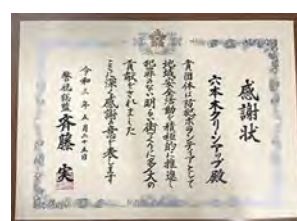 感謝状
六本木クリーンアップ殿
貴団体は防犯ボランティアとして
地域安全活動を積極的に推進し
犯罪のない明るい街づくりに多大の
貢献をされました
ここに深く感謝の意を表します
令和三年五月二十五日
警視総監 斉藤実